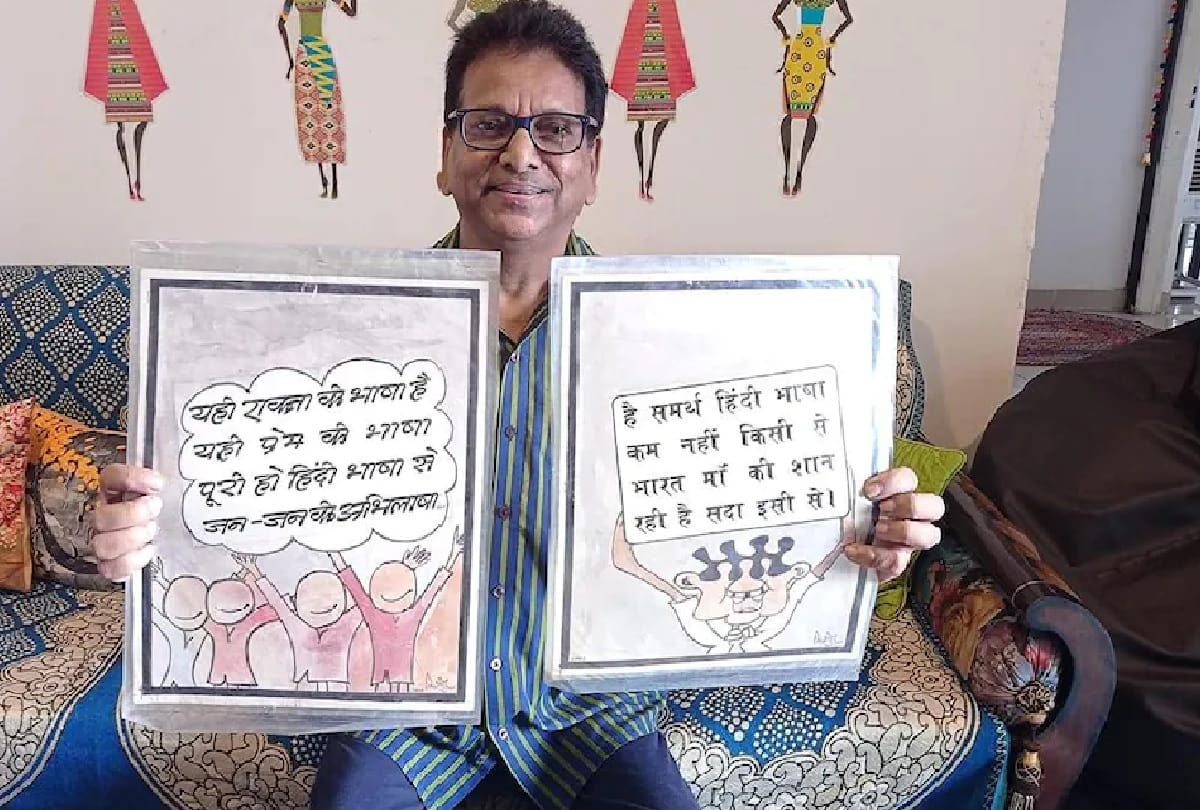 यही एकता की भाषा है
यही प्रेम की भाषा
पूरी हो हिंदी भाषा से
जन-जन की अभिलाषा
है समर्थ हिंदी भाषा
कम नहीं किसी से
भारत माँ की शान
रही है सदा इसी से।